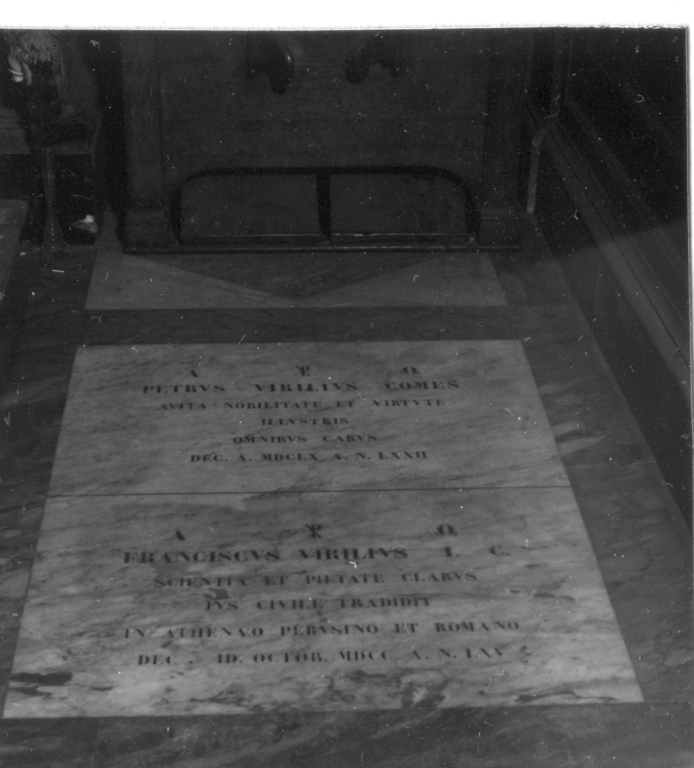 Α ☧ Ω
PETRVS VIRILIVS COMES
AVITA NOBILITATE ET VIRTVTE
ILLVSTRIS
OMNIBVS CARVS
DEC. A. MDCLX A. N. LXXII
Α ☧ Ω
FRANCISCVS VIRILIVS I. C.
SCIENTIA ET PIETATE CLARVS
IVS CIVILE TRADIDIT
IN ATHENAEO PERVSINO ET ROMANO
DEC. ID. OCTOB. MDCC A. N. LXV